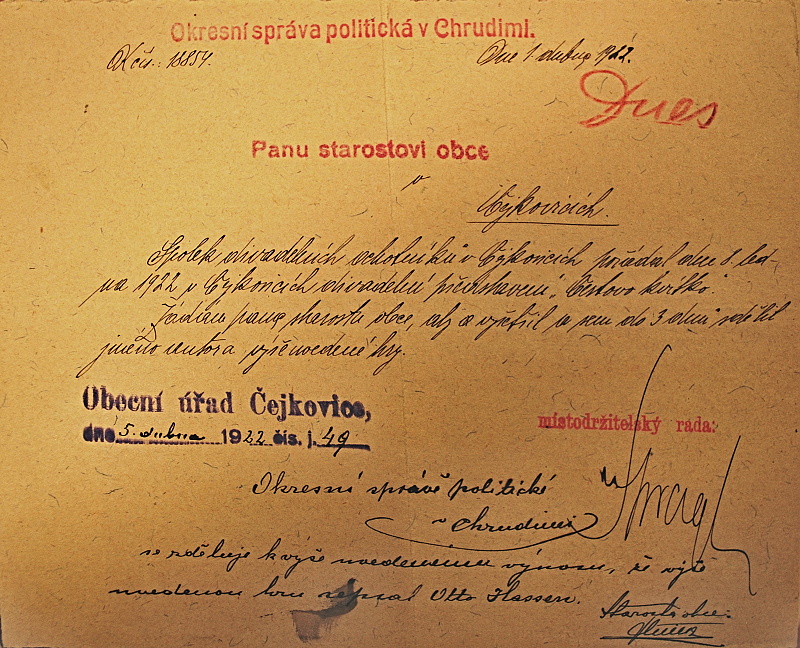 Okresní správa politická v Chrudimi.
Dne 1. dubna 1922.
Dnes
Panu starostovi obce
v
Čejkovicích.
Spolek divadelních ochotníků v Čejkovicích pořádal dne 8. led-
na 1922 v Čejkovicích divadelní představení „
Žádám pana starostu obce, aby vyšetřil a sem do 3 dnů sdělil
jméno autora výše uvedené hry.
Obecní úřad Čejkovice,
dne 5. dubna 1922 čís. j. 49
místodržitelský rada:
Okresní správě politické
v Chrudimi
se sděluje k výše uvedenému výnosu, že výše
uvedenou hru sepsal Otto Hassen.
Starosta obce: